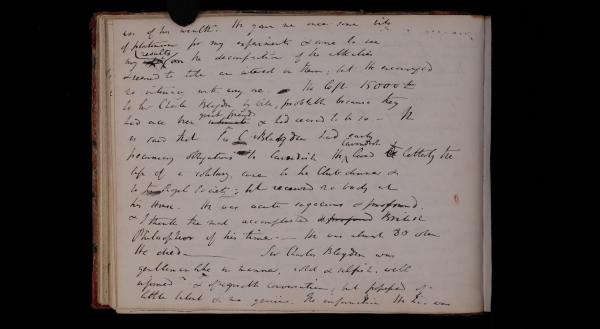 use of his wealth. He gave me once some bits
of platinum for my experiments & came to see
my results on the decomposition of the alkalies
& seemed to take an interest in them; but he encouraged
no intimacy with any one. He left 15000 £
to Sr Charles Blagden by will, probably because they
had once been great friends & had ceased to be so – It
is said that Sir C. Blagden had early
pecuniary obligations to Cavendish He Cavendish lived latterly the
life of a solitary, came to the Club dinner &
to the Royal Society; but received nobody at
his House. He was acute sagacious & profound
& I think the most accomplished British
Philosopher of his time. – He was about 80 when
He died — Sir Charles Blagden was
gentlemanlike in manner, cold & selfish, well
informed & of agreeable conversation; but possessed of
little talent & no genius. He was